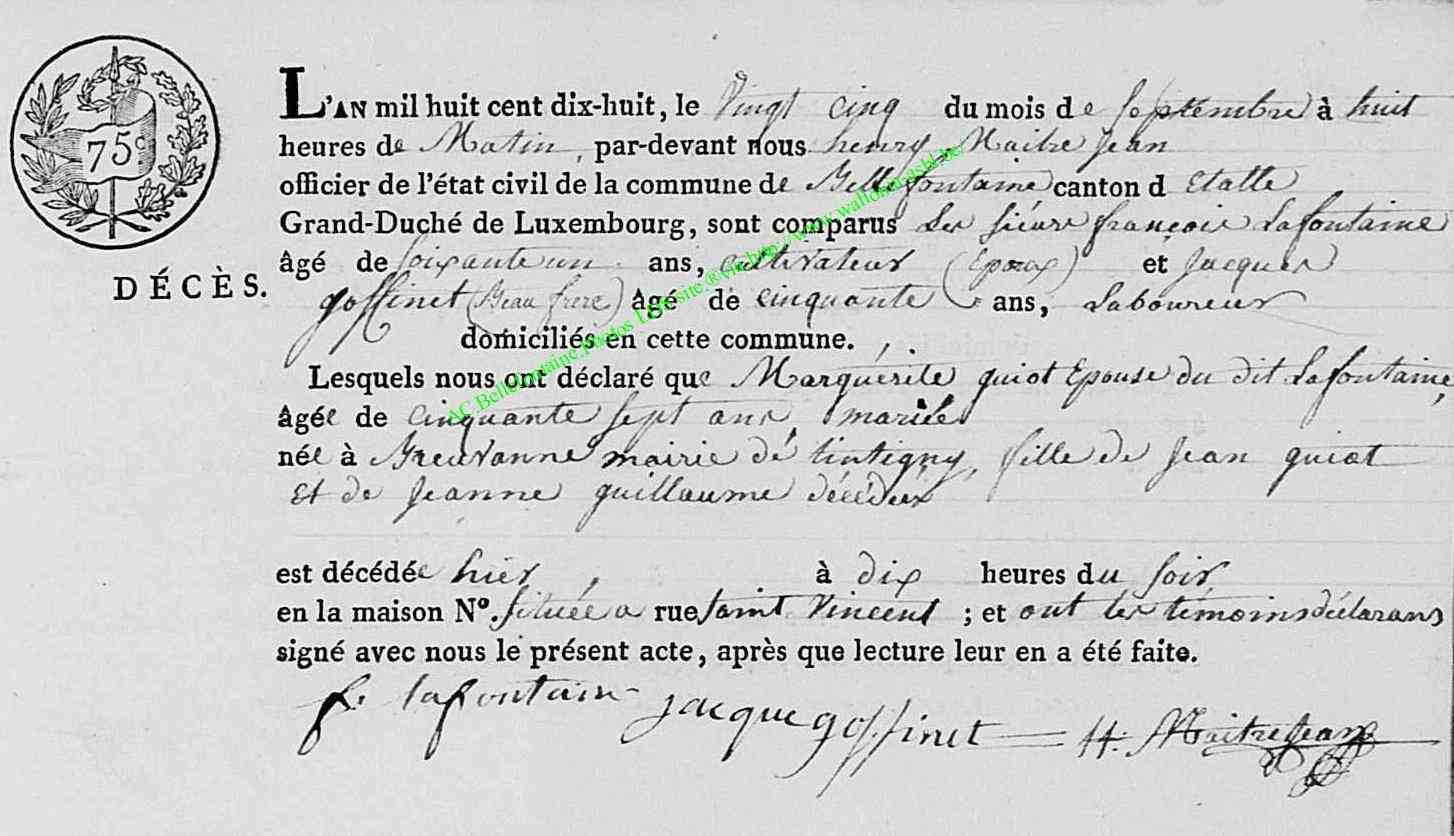 75c
L'AN mil huit cent dix-huit, le Vingt cinq du mois de Septembre à huit
heures de Matin, par-devant nous henry Maitre Jean
officier de l'état civil de la commune de Bellefontaine canton d Etalle
Grand-Duché de Luxembourg, sont comparus Les sieurs françois Lafontaine
âgé de soixante un ans, cultivateur (Epoux) et Jacques
DÉCÈS.
goffinet (Beau frère) âgé de cinquante ans, Laboureur
domiciliés en cette commune.
Lesquels nous ont déclaré que Marguérite guiot Epouse du dit Lafontaine,
âgée de cinquante sept ans, mariée
née à Breuvanne mairie de tintigny, fille de Jean guiot
Et de Jeanne guillaume décédés
est décédée hier, à dix heures du soir
en la maison N°. située a rue saint Vincent ; et ont les témoins déclarans
signé avec nous le présent acte, après que lecture leur en a été faite.
f. lafontain jacque goffinet H. MaitreJean
AC Bellefontaine